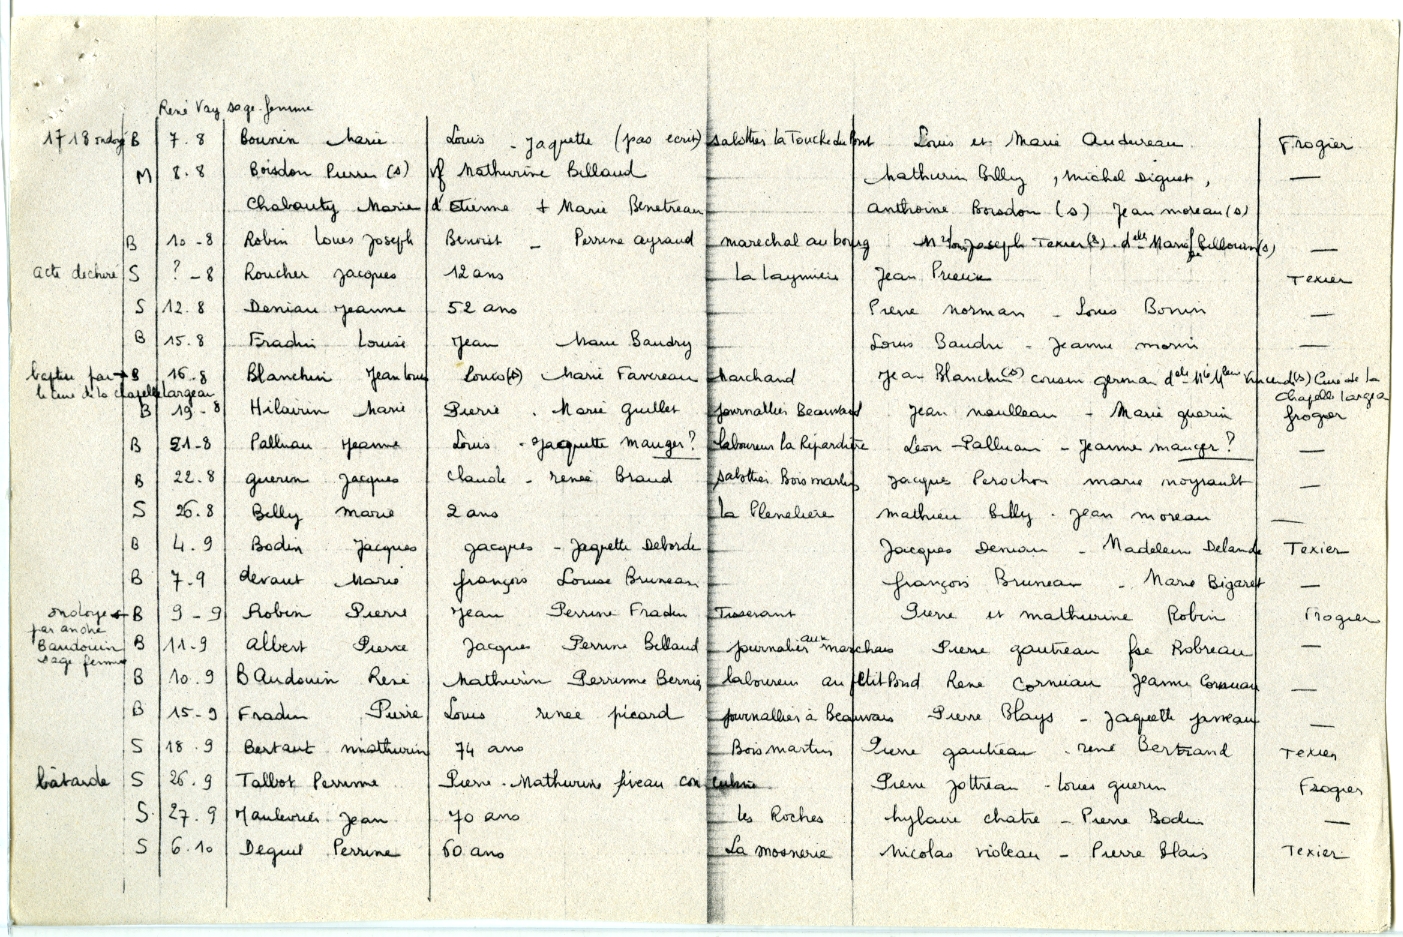 René Vay sage-femme
1718 ondoyé B 7.8 Bouvin Marie Louis - Jaquette (pas ecrit) sabottier la Touche du Pont Louis et Marie Audureau Frogier
M 8.8 Boisdon Pierre (s) vf Mathurine Billaud Mathurin Billy, Michel Diguet,  —
Chabauty Marie d'Etienne + Marie Benetreau anthoine Boisdon (s) Jean moreau (s)
B 10-8 Robin Louis Joseph Benoist - Perrine ayraud marechal au bourg Joseph Texier (s). delle Marie Billouin (s) —
acte dechiré S ?-8 Roucher Jacques 12 ans La Laymiere Jean Prieur Texier
S 12.8 Deniau Jeanne 52 ans Pierre Norman - Louis Bonnin —
B 15.8 Fradin Louise Jean Marie Baudry Louis Baudri - Jeanne morin —
baptisé par → B 16.8 Blanchin Jean Louis Louis (s) Marie Favereau Marchand Jean Blanchin (s) cousin german delle Vincend (s) Cure de la
le cure de la chapelle Largeau Chapelle Largea
B 19-8 Hilairin Marie Pierre. Marie Guillet journallier Beauvais Jean naulleau - Marie guerin frogier
B 21-8 Palluau Jeanne Louis - Jacquette Mauger? laboureur la Ripardiere Léon Palluau - Jeanne mauger? —
B 22.8 guerin Jacques claude - renée Braud sabottier Bois martin Jacques Perochon marie noyrault —
S 26.8 Billy marie 2 ans la Pleneliere mathieu billy. Jean moreau —
B 4.9 Bodin Jacques Jacques - Jaquette Deborde Jacques Deniau - Madelein Delande Texier
B 7-9 devaut Marie françois Louise Bruneau françois Bruneau - Marie Bigaret —
ondoye ← B 9-9 Robin Pierre Jean Perrine Fradin Tisserant Pierre et mathurine Robin Frogier
par andré
Baudouin B 11-9 albert Pierre Jacques Perrine Billaud journalier aux marchais Pierre gautreau fse Robreau —
sage femme
B 10.9 BAudouin René Mathurin Perrinne Bernier laboureur au petit Pond René Corniau Jeanne Corniau —
B 15-9 Fradin Pierre Louis renée picard journallier à Beauvais Pierre Blays - Jaquette janneau —
S 18.9 Bertaut mathurin 74 ans Bois martin Pierre gautieau - rené Bertrand Texier
bâtarde S 26.9 Talbot Perrinne Pierre. Mathurine fiveau concubine Pierre Jottreau - louis guerin Frogier
S. 27.9 Maulevrier Jean 70 ans les Roches hylaire chatre - Pierre Bodin —
S 6.10 Deguil Perrine 60 ans La mosnerie Nicolas violeau - Pierre blais Texier